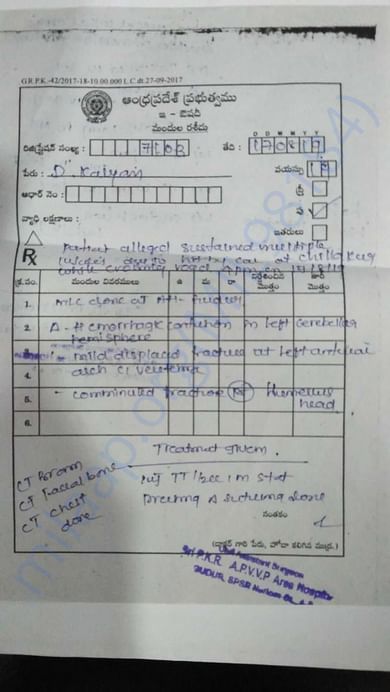 G.R.P.K.-42/2017-18-10.00.000 L.C.dt:27-09-2017
ఆంధ్రప్రదేశ్ ప్రభుత్వము
ఇ - ఔషధి
మందుల రశీదు
రిజిస్ట్రేషన్ సంఖ్య : 7103
తేది : D D M M Y Y
170819
పేరు : D. Kalyan
వయస్సు 19
ఆధార్ నెం :
స్త్రీ
పు ✓
వ్యాధి లక్షణాలు :
ఇతరులు
Rx
Patient alleged sustained multiple
injuries due to hit by car at chillakur
while crossing road
క్ర.సం. మందుల వివరములు ఉ మ రా మొత్తం మొత్తం
1. MLC done at AH- Gudur
2. A - Hemorrhagic contusion in left cerebellar
hemisphere
3. - mild displaced fracture at left
4. arch C1 vertebra
5. - comminuted fracture Humerus
head
6.
Treatment given
CT Brain
CT Facial bone
CT Chest
done
Inj TT 1/2cc IM stat
Dressing & suturing done
సంతకం
(డాక్టర్ గారి పేరు, హోదా కలిగిన ముద్ర.)
Civil Assistant Surgeon
A.P.V.V.P Area Hospital
GUDUR, SPSR Nellore